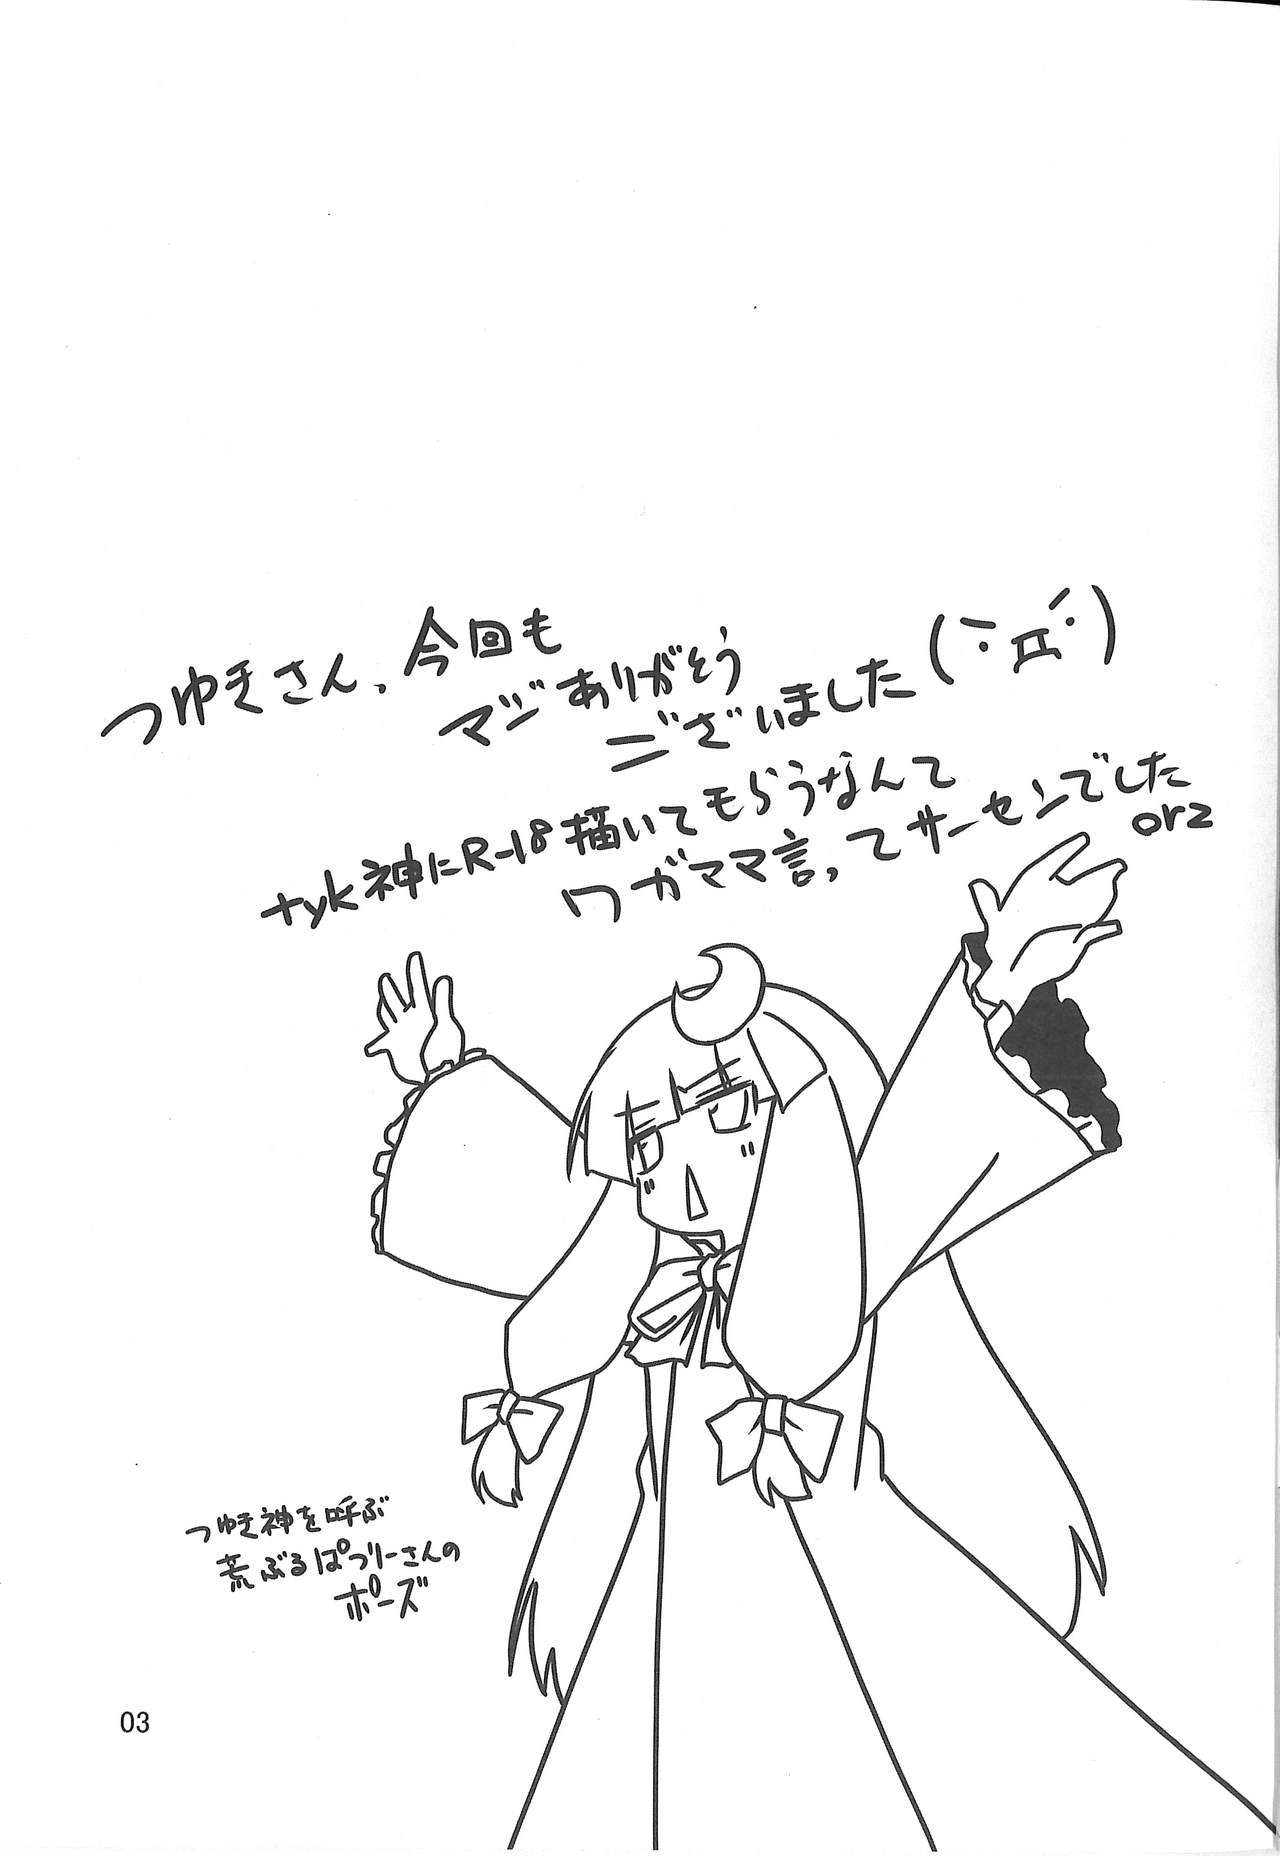 つゆきさん、今回も
マジありがとう
ございました(`･д´･)
tyk神にR-18描いてもらうなんて
ワガママ言ってサーセンでした
orz
つゆき神を呼ぶ
荒ぶるぱつりーさんの
ポーズ
03